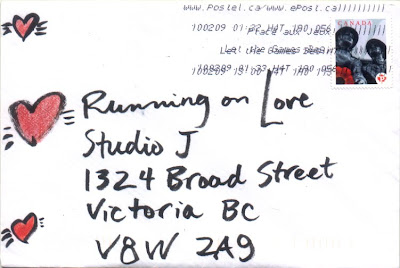 www.postel.ca www.ePost.ca
100209 01:33 H4T 1A0 056
Place aux Jeux!
Let the Games Begin
100209 01:33 H4T 1A0 056
CANADA
P
Running on Love
Studio J
1324 Broad Street
Victoria BC
V8W 2A9